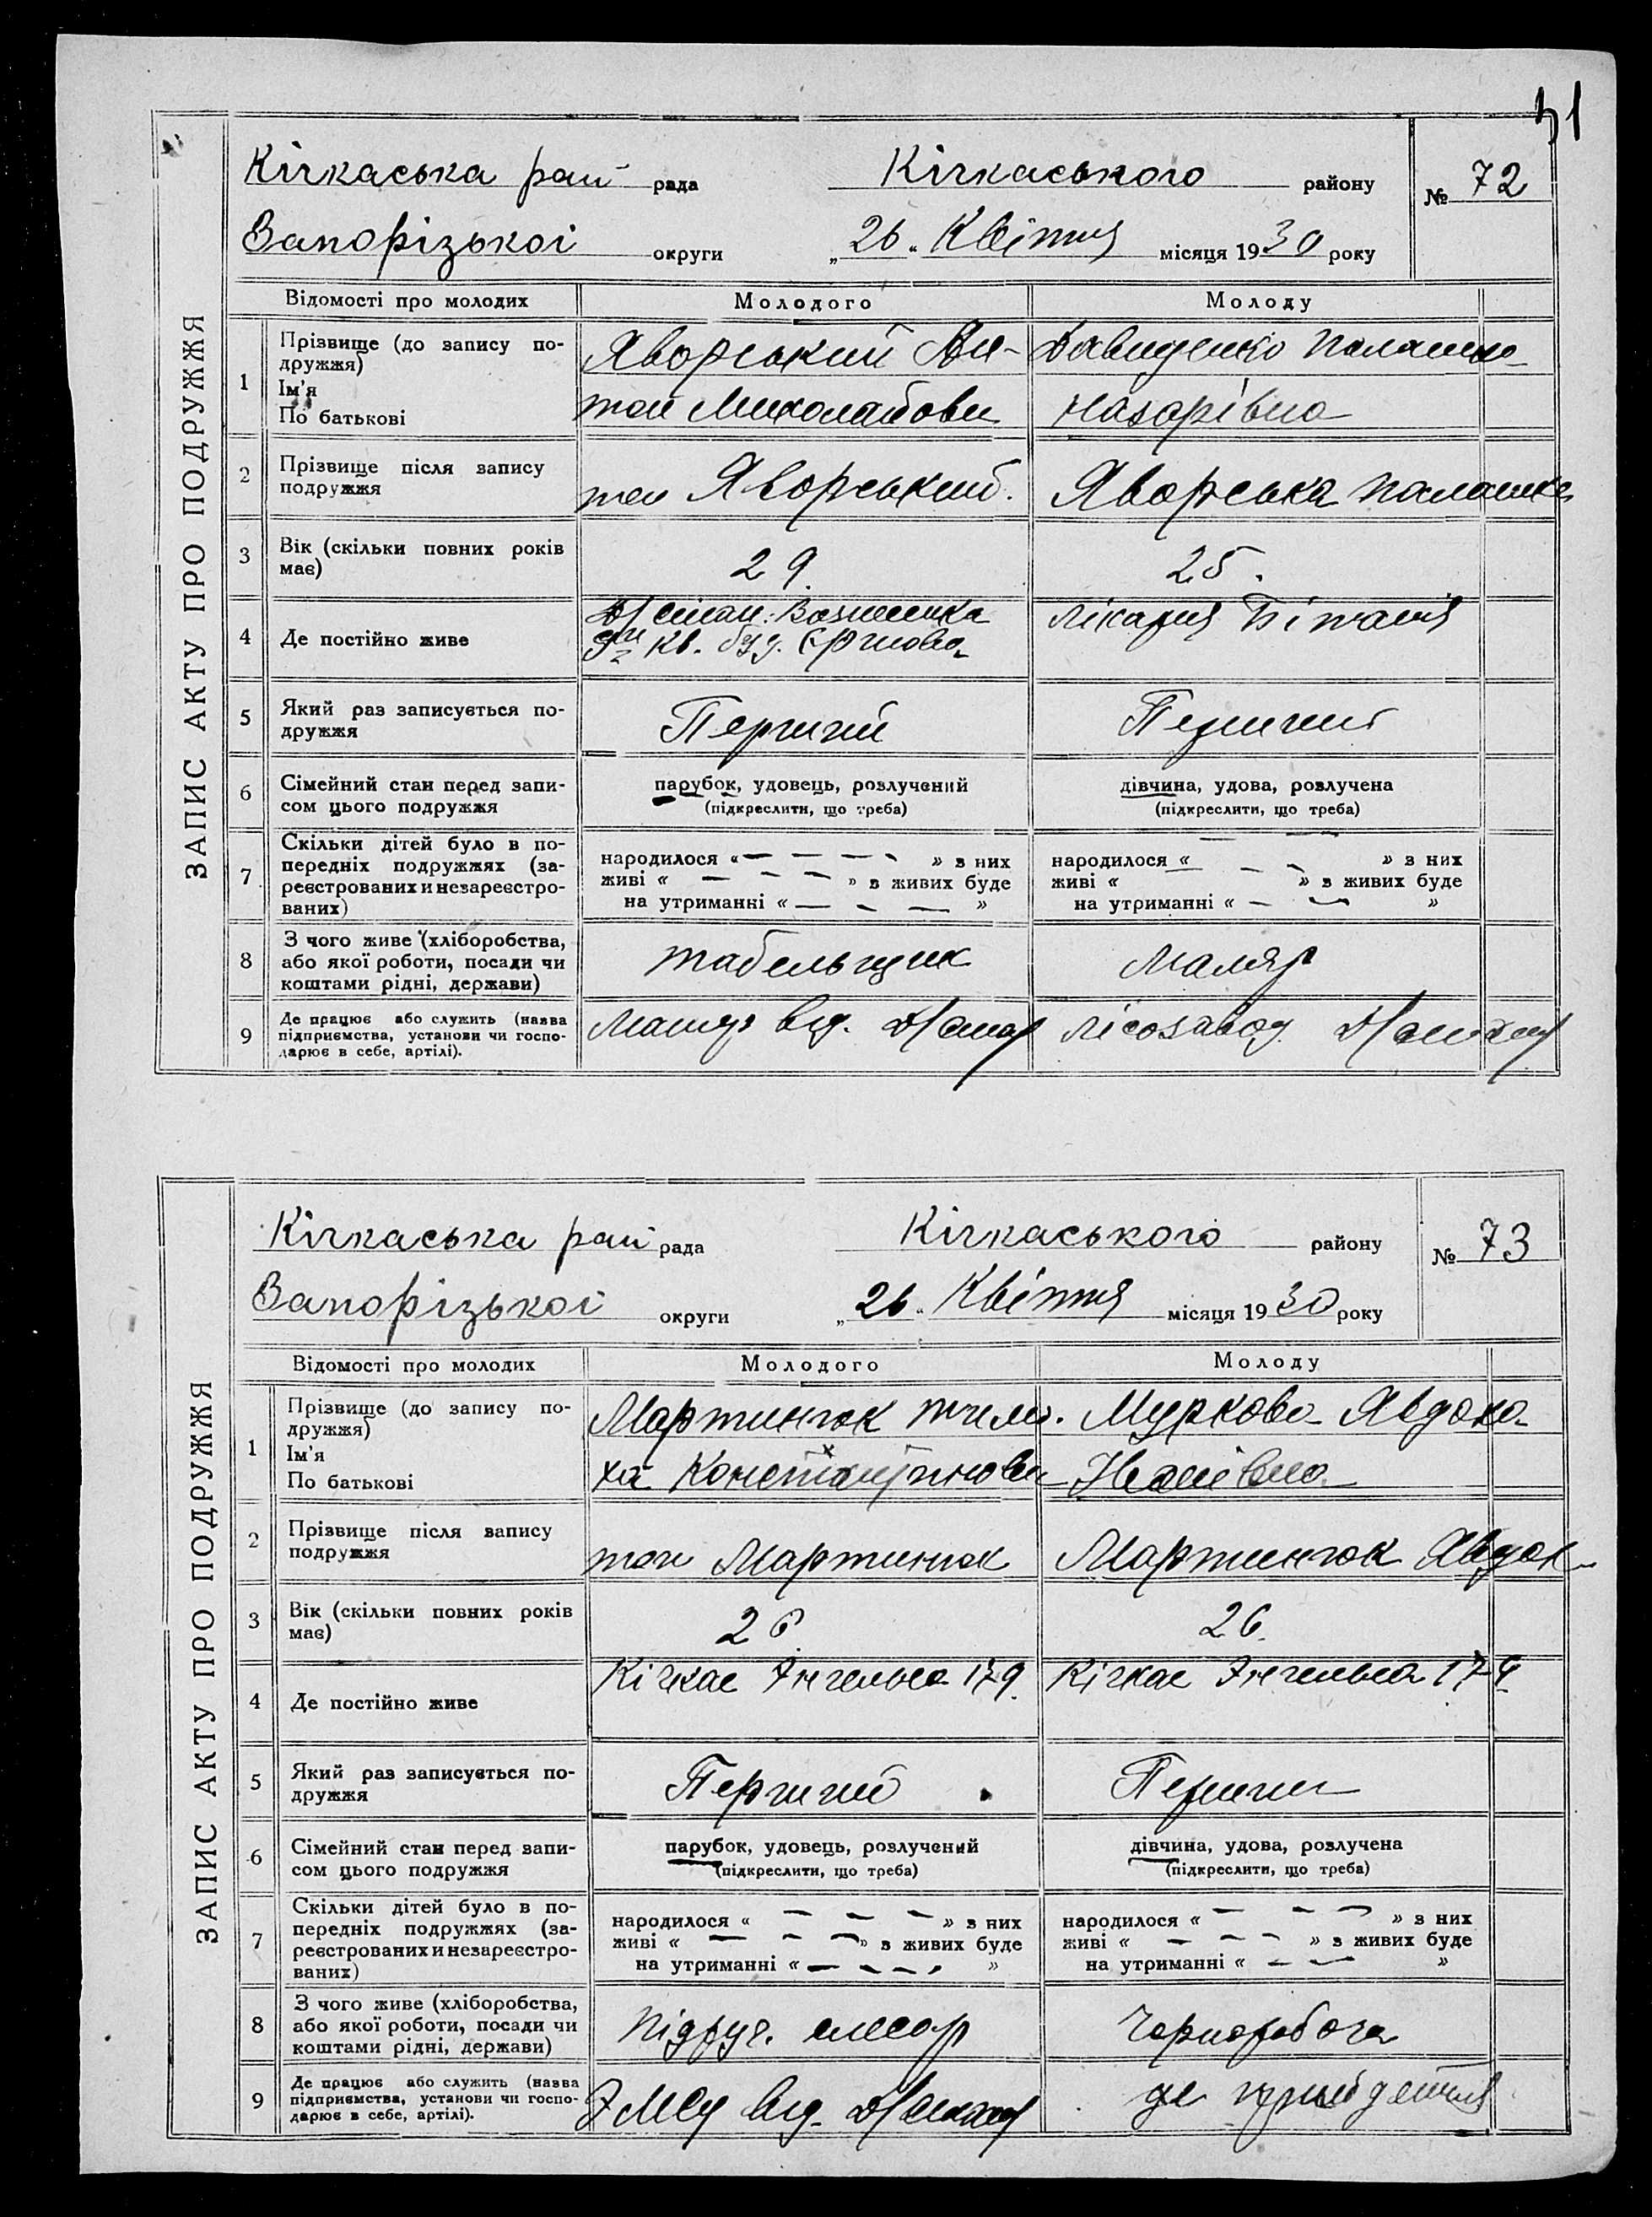 Кічкаська рай рада Кічкаського району № 72
Запорізької округи „26“ Квітня місяця 1930 року
ЗАПИС АКТУ ПРО ПОДРУЖЖЯ
Відомості про молодих Молодого Молоду
1 Прізвище (до запису по-
дружжя)
Ім'я
По батькові
Яворський Ан-
тон Миколайович
Давиденко Палашка
Назарівна
2 Прізвище після запису
подружжя
Яворський
Яворська Палашка
3 Вік (скільки повних років
має)
29.
25.
4 Де постійно живе
Вознесенка
кв. буд.
Лікарня
5 Який раз записується по-
дружжя
Перший
Перший
6 Сімейний стан перед запи-
сом цього подружжя
парубок, удовець, розлучений
(підкреслити, що треба)
дівчина, удова, розлучена
(підкреслити, що треба)
7 Скільки дітей було в по-
передніх подружжях (за-
реєстрованих и незареєстро-
ваних)
народилося « — — — » з них
живі « — — — » з живих буде
на утриманні « — — — »
народилося « — — — » з них
живі « » з живих буде
на утриманні « — — »
8 З чого живе (хліборобства,
або якої роботи, посади чи
коштами рідні, держави)
табельщик
Маляр
9 Де працює або служить (назва
підприємства, установи чи госпо-
дарює в себе, артілі).
від.
Лісозавод
Кічкаська рай рада Кічкаського району № 73
Запорізької округи „26“ Квітня місяця 1930 року
ЗАПИС АКТУ ПРО ПОДРУЖЖЯ
Відомості про молодих Молодого Молоду
1 Прізвище (до запису по-
дружжя)
Ім'я
По батькові
Мартинюк
Муркова Явдоха
2 Прізвище після запису
подружжя
Мартинюк
Мартинюк Явдох
3 Вік (скільки повних років
має)
26.
26.
4 Де постійно живе
Кічкас Енгельса 179.
Кічкас Енгельса 179.
5 Який раз записується по-
дружжя
Перший
Перший
6 Сімейний стан перед запи-
сом цього подружжя
парубок, удовець, розлучений
(підкреслити, що треба)
дівчина, удова, розлучена
(підкреслити, що треба)
7 Скільки дітей було в по-
передніх подружжях (за-
реєстрованих и незареєстро-
ваних)
народилося « — — — » з них
живі « — — — » з живих буде
на утриманні « — — — »
народилося « — — — » з них
живі « — — — » з живих буде
на утриманні « — — »
8 З чого живе (хліборобства,
або якої роботи, посади чи
коштами рідні, держави)
Підруч. слесар
Чорноробоча
9 Де працює або служить (назва
підприємства, установи чи госпо-
дарює в себе, артілі).
від.
де прийдеться